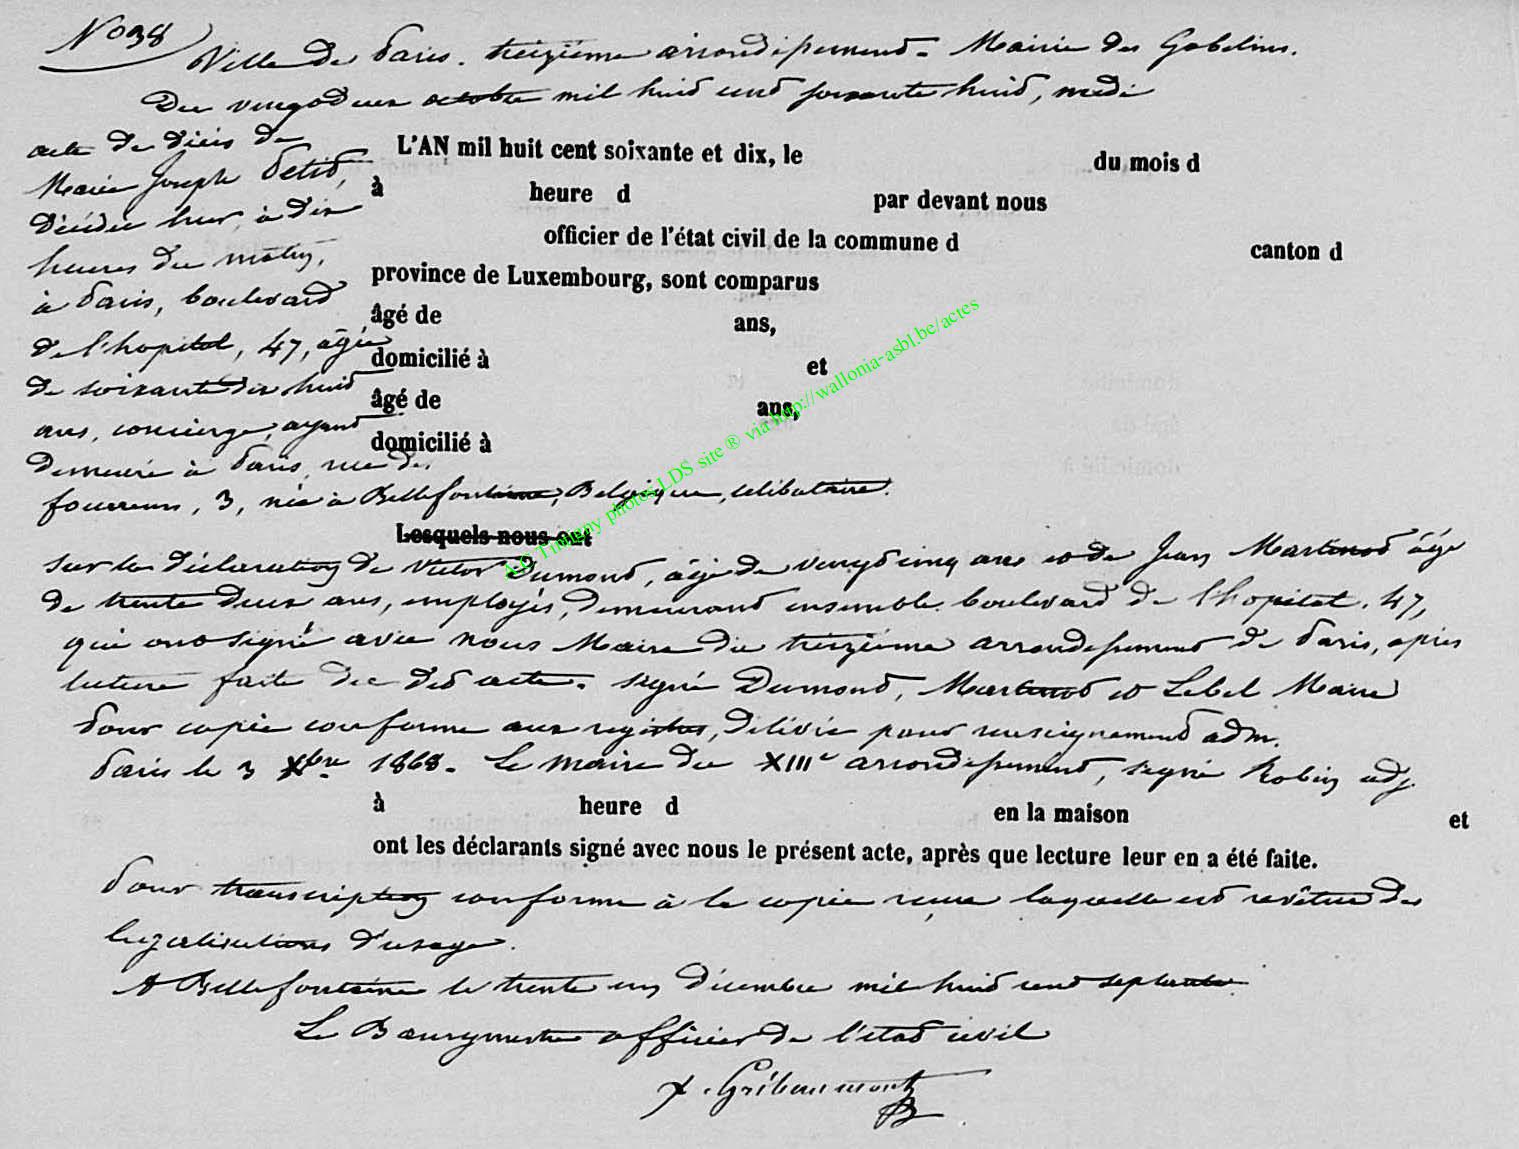 N° 38
Ville de Paris. treizième arrondissement. Mairie des Gobelins.
Du vingt deux octobre mil huit cent soixante huit, midi
acte de décès de
Marie Joseph Petit,
décédée hier, à dix
heures du matin,
à Paris, boulevard
de l'hopital, 47, âgée
de soixante dix huit
ans, concierge, ayant
demeuré à Paris, rue des
L'AN mil huit cent soixante et dix, le du mois d
à heure d par devant nous
officier de l'état civil de la commune d canton d
province de Luxembourg, sont comparus
âgé de ans,
domicilié à et
âgé de ans,
domicilié à
foureurs, 3, née à Bellefontaine, Belgique, célibataire.
Lesquels nous ont
sur la déclaration de Victor Dumont, âgé de vingt cinq ans et de Jean Martinot âgé
de trente deux ans, employés, demeurant ensemble boulevard de l'hopital. 47,
qui ont signé avec nous Maire du treizième arrondissement de Paris, après
lecture faite du dit acte. signé Dumont, Martinot et Lebel Maire
Pour copie conforme aux registres, délivrée pour renseignement adm.
Paris le 3 Xbre 1868. Le Maire du XIIIe arrondissement, signé Robin adj.
à heure d en la maison et
ont les déclarants signé avec nous le présent acte, après que lecture leur en a été faite.
Pour transcription conforme à la copie reçue laquelle est revêtue des
légalisations d'usage.
A Bellefontaine le trente un décembre mil huit cent septante.
Le Bourgmestre officier de l'état civil
Gribaumont
AC Tintigny photos LDS site ® via http://wallonia-asbl.be/actes